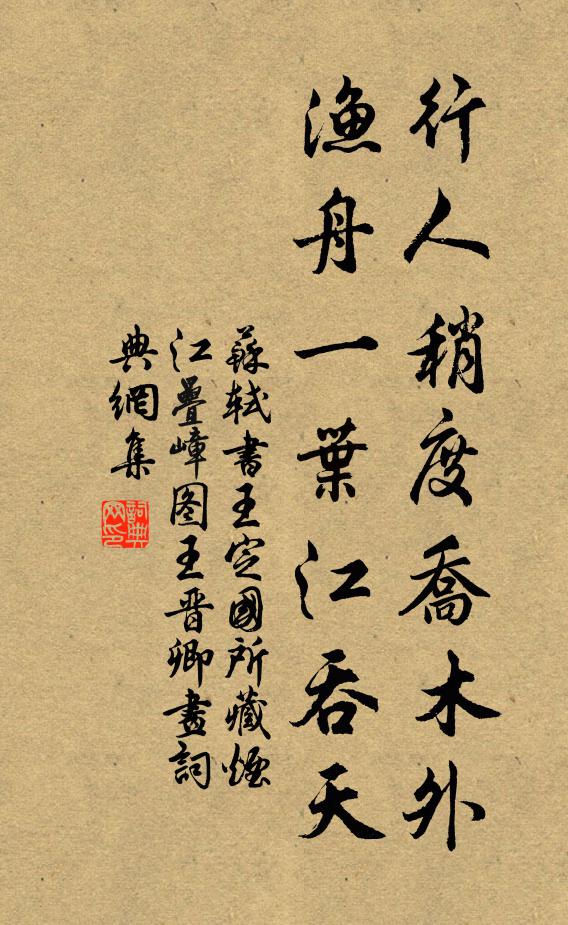 行人稍度喬木外
漁舟一葉江吞天
蘇軾書王定國所藏煙
江疊嶂图王晋卿畫詞
典網集
詞典网印